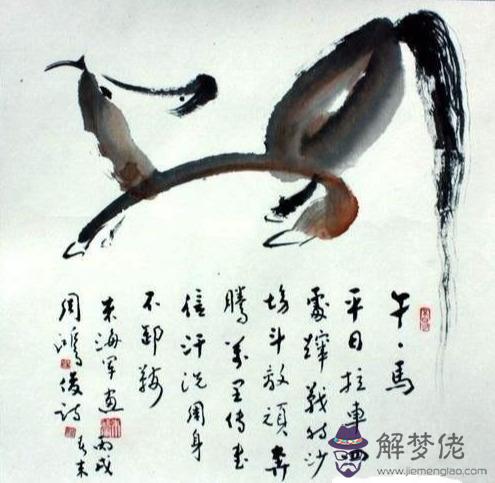 午·馬
平日拉車四
處蹿戰时沙
場斗敌頑奔
騰萬里传書
信汗洗周身
不卸鞍
海军画 丙戌
周鴻俊诗
解梦佬
www.jiemenglao.com